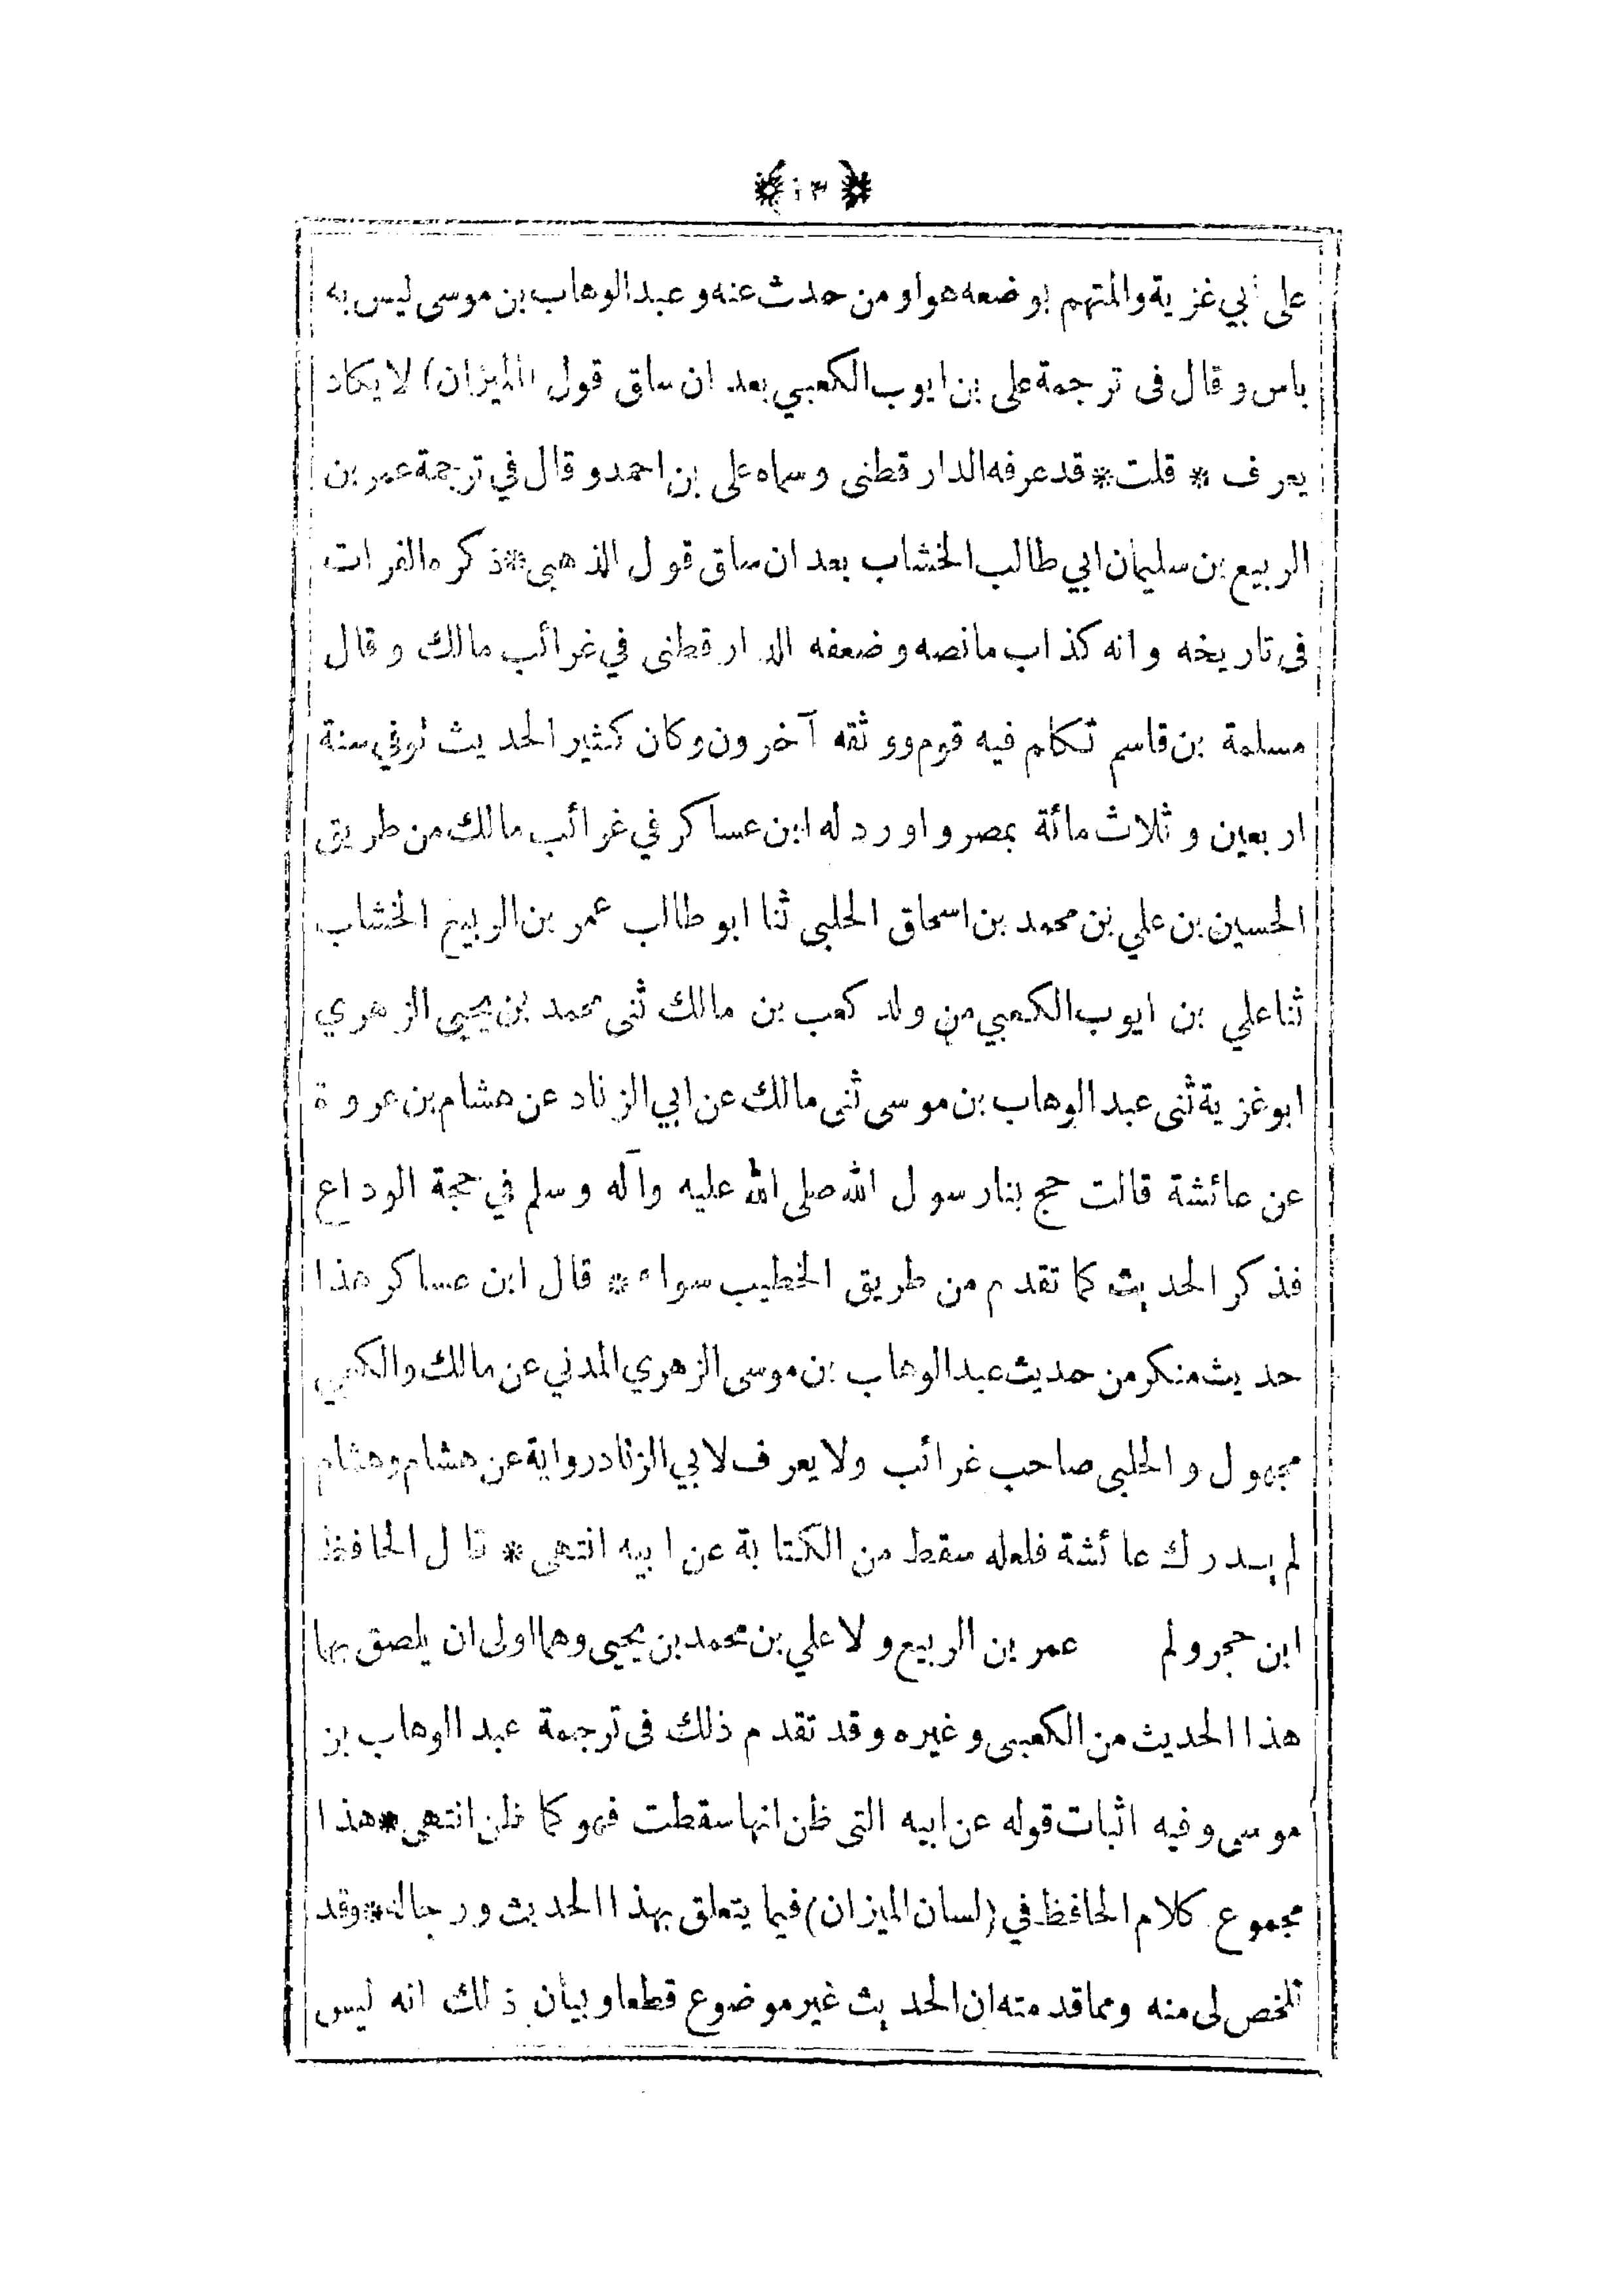 ﴿١٣﴾
على أبي غزية والمتهم بوضعه هو او من حدث عنه وعبد الوهاب بن موسى ليس به
باس وقال فى ترجمة على بن ايوب الكعبي بعد ان ساق قول (الميزان) لا يكاد
يعرف * قلت * قد عرفه الدار قطنى وسماه على بن احمد وقال في ترجمة عمر بن
الربيع بن سليمان ابي طالب الخشاب بعد ان ساق قول الذهبى * ذكره الفرات
فى تاريخه وانه كذاب ما نصه وضعفه الدار قطنى في غرائب مالك وقال
مسلمة بن قاسم تكلم فيه قوم ووثقه آخرون وكان كثير الحديث توفي سنة
اربعين وثلاث مائة بمصر واورد له ابن عساكر في غرائب مالك من طريق
الحسين بن علي بن محمد بن اسحاق الحلبى ثنا ابو طالب عمر بن الربيع الخشاب
ثنا علي بن ايوب الكعبي من ولد كعب بن مالك ثنى محمد بن يحيى الزهري
ابو غزية ثنى عبد الوهاب بن موسى ثنى مالك عن ابي الزناد عن هشام بن عروة
عن عائشة قالت حج بنا رسول الله صلى الله عليه وآله وسلم في حجة الوداع
فذكر الحديث كما تقدم من طريق الخطيب سواء * قال ابن عساكر هذا
حديث منكر من حديث عبد الوهاب بن موسى الزهري المدني عن مالك والكعبي
مجهول والحلبى صاحب غرائب ولا يعرف لابي الزناد رواية عن هشام وهشام
لم يدرك عائشة فلعله سقط من الكتابة عن ابيه انتهى * قال الحافظ
ابن حجر ولم عمر بن الربيع ولا علي بن محمد بن يحيى وهما اولى ان يلصق بهما
هذا الحديث من الكعبى وغيره وقد تقدم ذلك فى ترجمة عبد الوهاب بن
موسى وفيه اثبات قوله عن ابيه التى ظن انها سقطت فهو كما ظن انتهى * هذا
مجموع كلام الحافظ في (لسان الميزان) فيما يتعلق بهذا الحديث ورجاله * وقد
تلخص لى منه ومما قدمته ان الحديث غير موضوع قطعا وبيان ذلك انه ليس